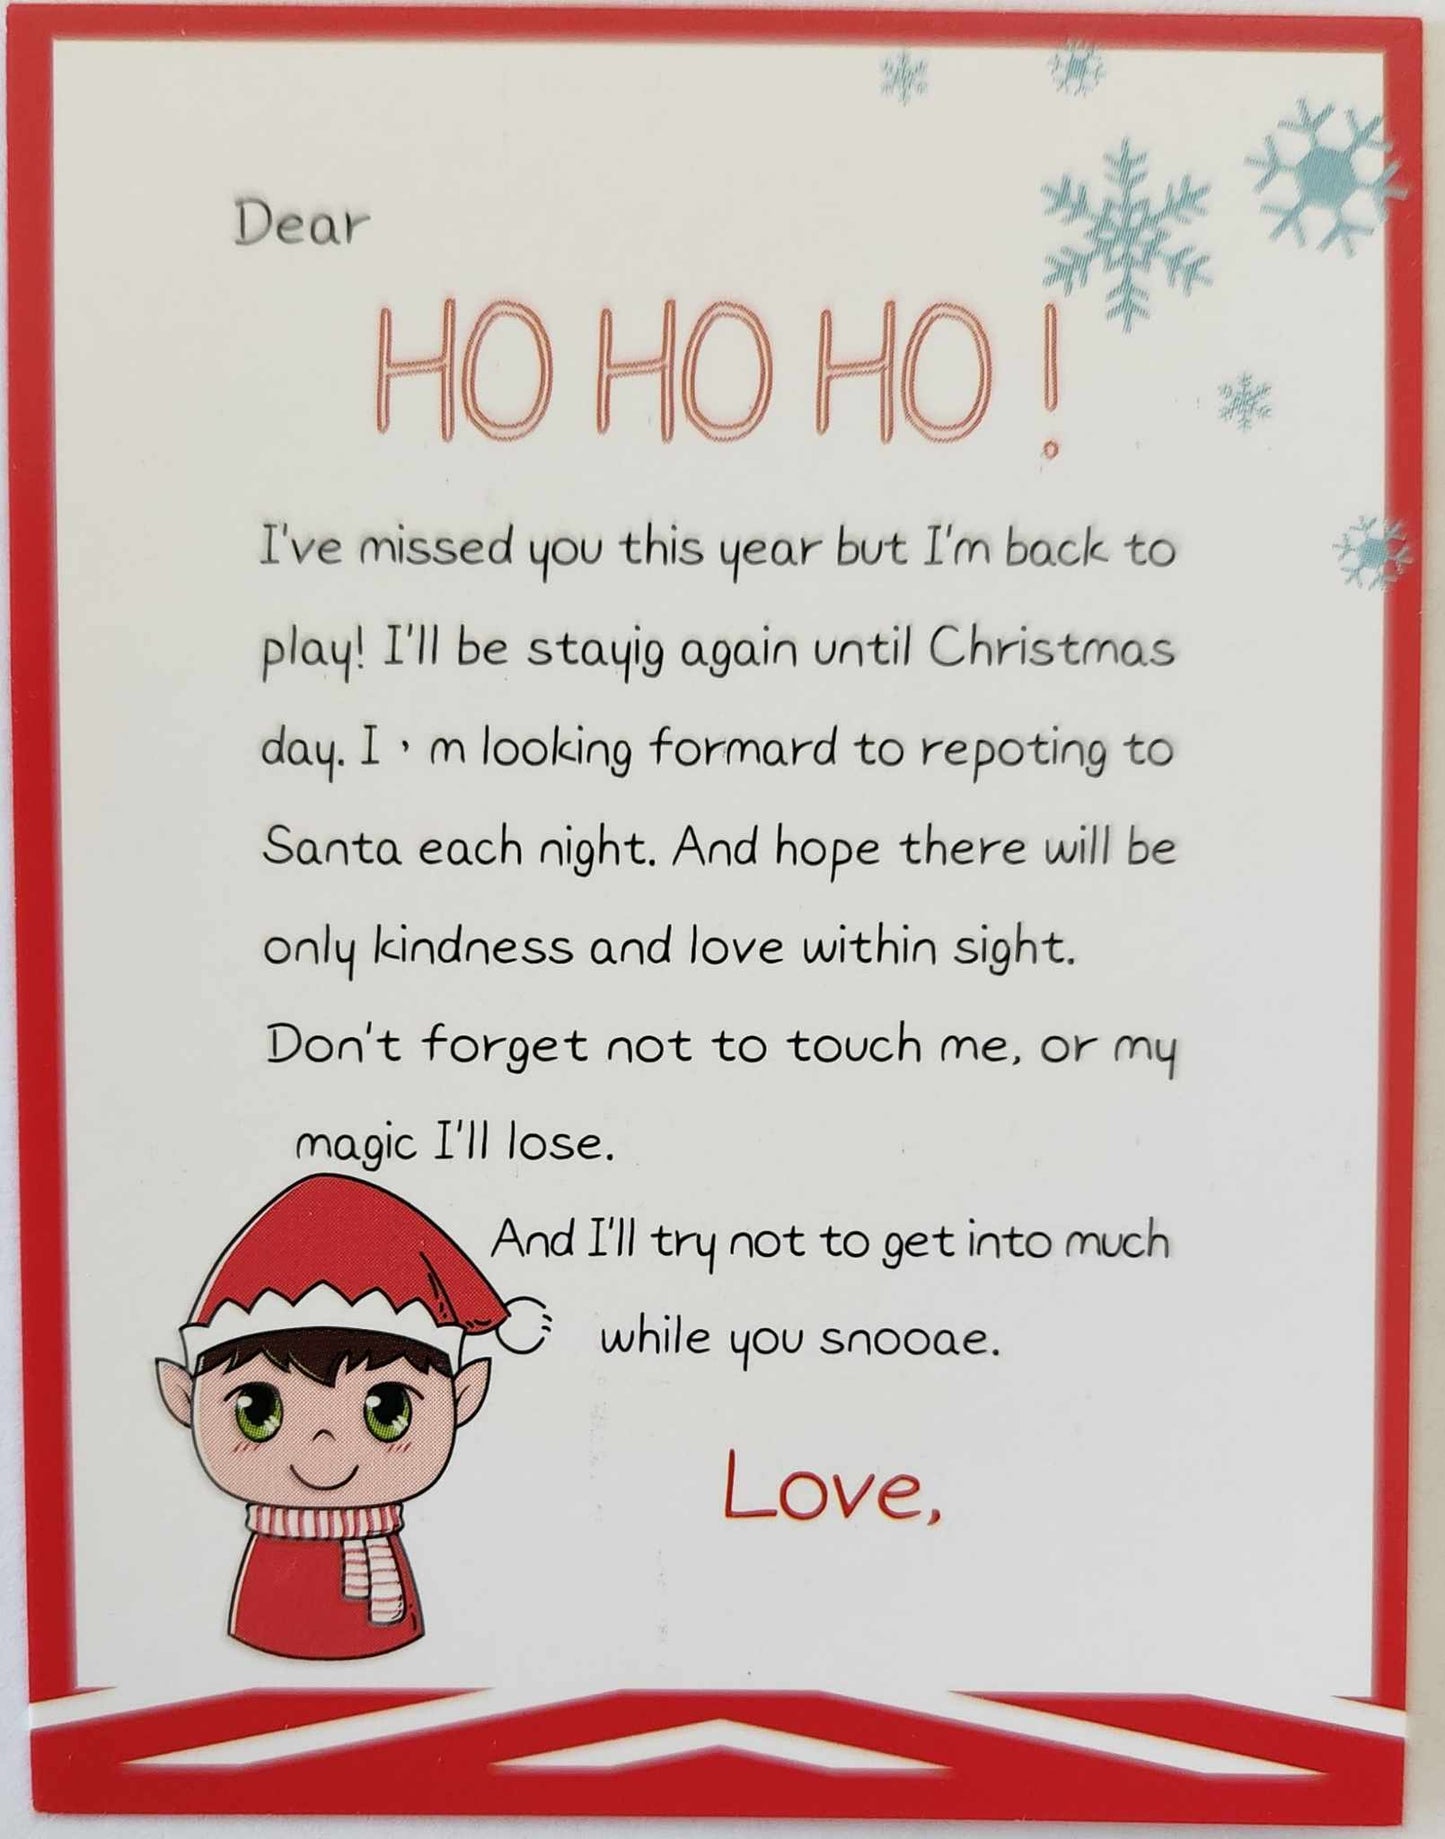 Dear
HO HO HO !
I've missed you this year but I'm back to
play! I'll be stayig again until Christmas
day. I ’ m looking formard to repoting to
Santa each night. And hope there will be
only kindness and love within sight.
Don't forget not to touch me, or my
magic I'll lose.
And I'll try not to get into much
while you snooae.
Love,